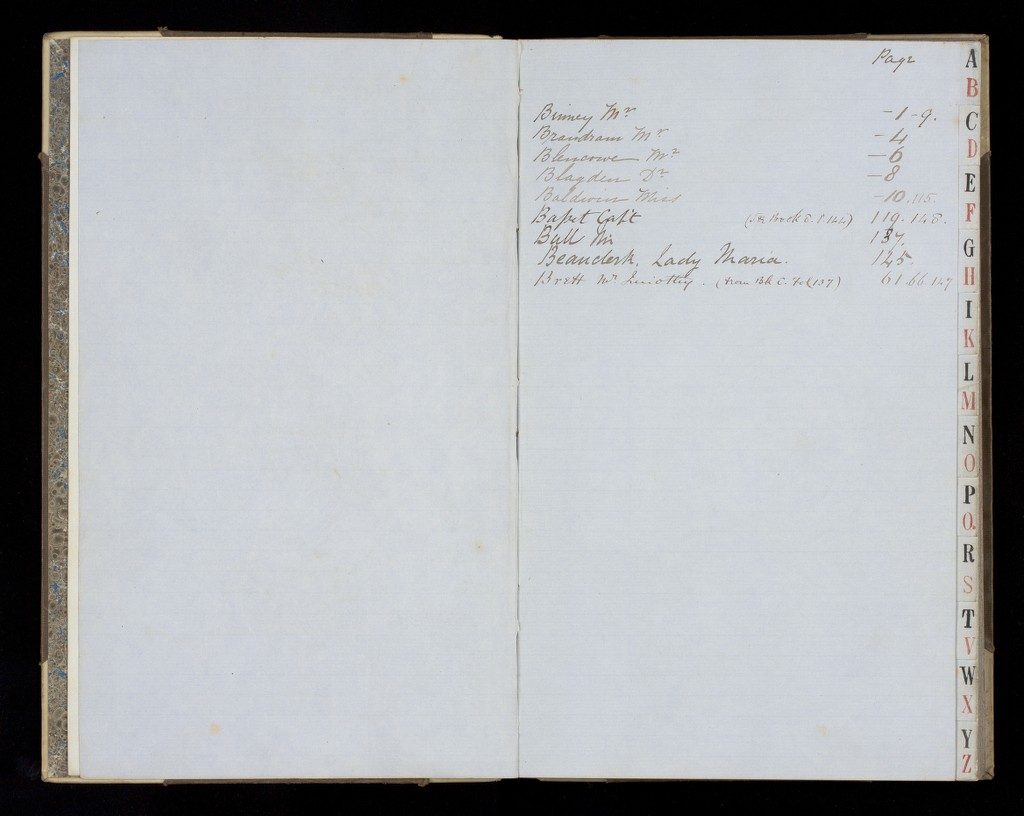 Page
Binney Mr -1-9.
Brandram Mr -4
Blencowe Mr -6
Blagden Dr -8
Baldwin Miss -10.115.
Basset Capt (See Book 8. P.144) 119. 148.
Bull Mr 137.
Beauclerk, Lady Maria. 145.
Brett Mr Timothy. (from Bk C. Fol 137) 61.66.147
A
B
C
D
E
F
G
H
I
K
L
M
N
O
P
Q.
R
S
T
V
W
X
Y
Z